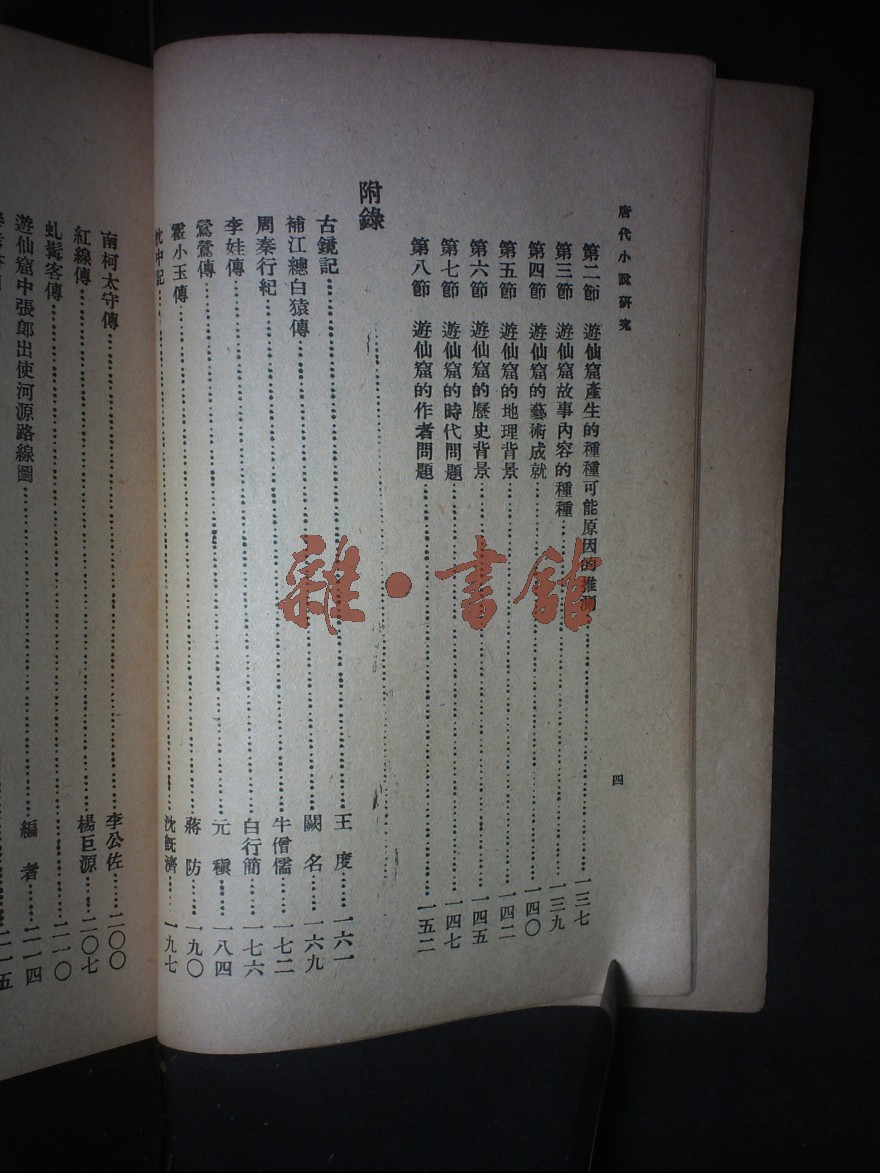 唐代小說研究
四
第二節 遊仙窟產生的種種可能原因的推測……一三七
第三節 遊仙窟故事內容的種種……一三九
第四節 遊仙窟的藝術成就……一四〇
第五節 遊仙窟的地理背景……一四二
第六節 遊仙窟的歷史背景……一四五
第七節 遊仙窟的時代問題……一四七
第八節 遊仙窟的作者問題……一五二
附錄
古鏡記……王度……一六一
補江總白猿傳……闕名……一六九
周秦行紀……牛僧儒……一七二
李娃傳……白行簡……一七六
鶯鶯傳……元稹……一八四
霍小玉傳……蔣防……一九〇
枕中記……沈旣濟……一九七
南柯太守傳……李公佐……二〇〇
紅線傳……楊巨源……二〇七
虬髯客傳……二一〇
遊仙窟中張郎出使河源路線圖……編者……二一四
二一五
雜·書館